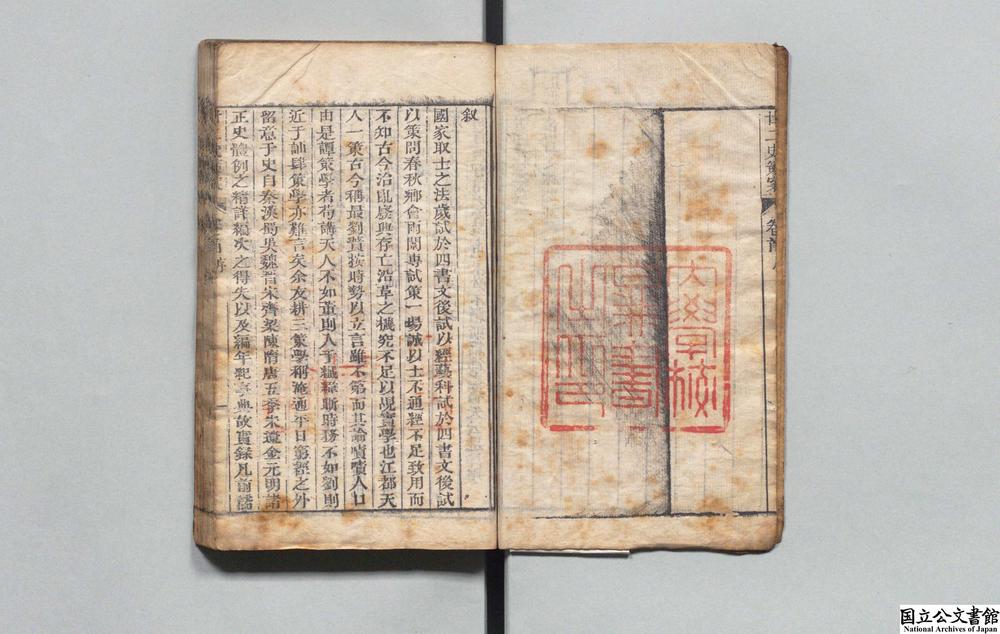 廿二史策案 卷首 序
大學校圖書之印
叙
國家取士之法歲試於四書文後試以經藝科試於四書文後試
以策問春秋鄉會兩闈專試策一場誠以士不通經不足致用而
不知古今治亂廢興存亡沿革之機究不足以覘實學也江都天
人一策古今稱最劉蕡按時勢以立言雖不第而其論嘖嘖人口
由是譚策學者苟講天人不如董則入于緘緯斷時務不如劉則
近于訕肆策學亦難言矣余友耕三策學稱淹通平日窮經之外
留意于史自秦漢蜀吳魏晉宋齊梁陳隋唐五季宋遼金元明諸
正史體例之精詳編次之得失以及編年紀事典故實錄凡前儒
国立公文書館
National Archives of Japan